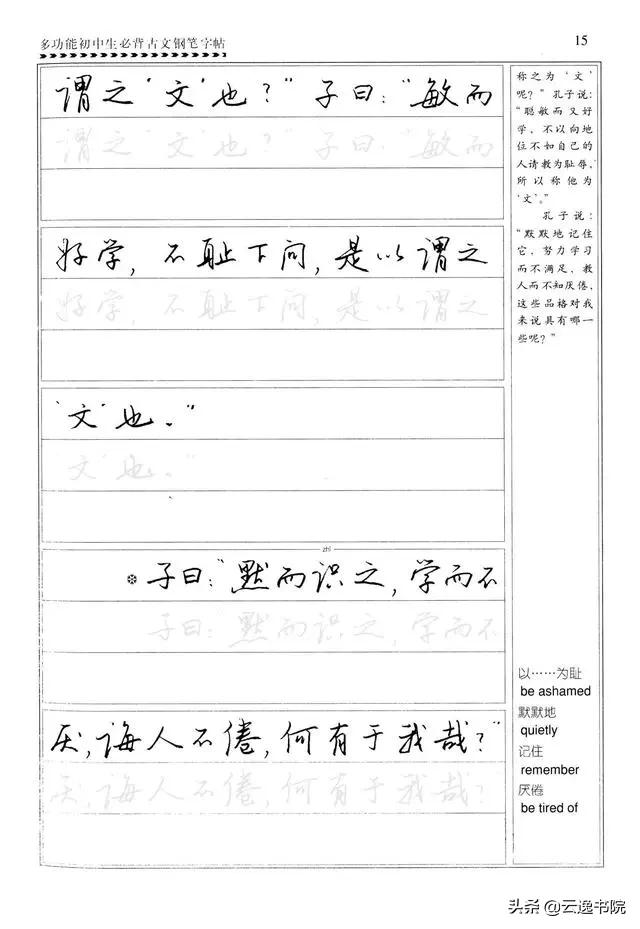 多功能初中生必背古文钢笔字帖
15
谓之‘文’也？”子曰：“敏而
谓之‘文’也？”子曰：“敏而
好学，不耻下问，是以谓之
好学，不耻下问，是以谓之
‘文’也。”
‘文’也。”
zhì
※子曰：“默而识之，学而不
子曰：“默而识之，学而不
厌，诲人不倦，何有于我哉？”
厌，诲人不倦，何有于我哉？
称之为‘文’
呢？”孔子说：
“聪敏而又好
学，不以向地
位不如自己的
人请教为耻辱，
所以称他为
‘文’。”
孔子说：
“默默地记住
它，努力学习
而不满足，教
人而不知厌倦，
这些品格对我
来说具有哪一
些呢？”
以……为耻
be ashamed
默默地
quietly
记住
remember
厌倦
be tired of
头条 @云逸书院